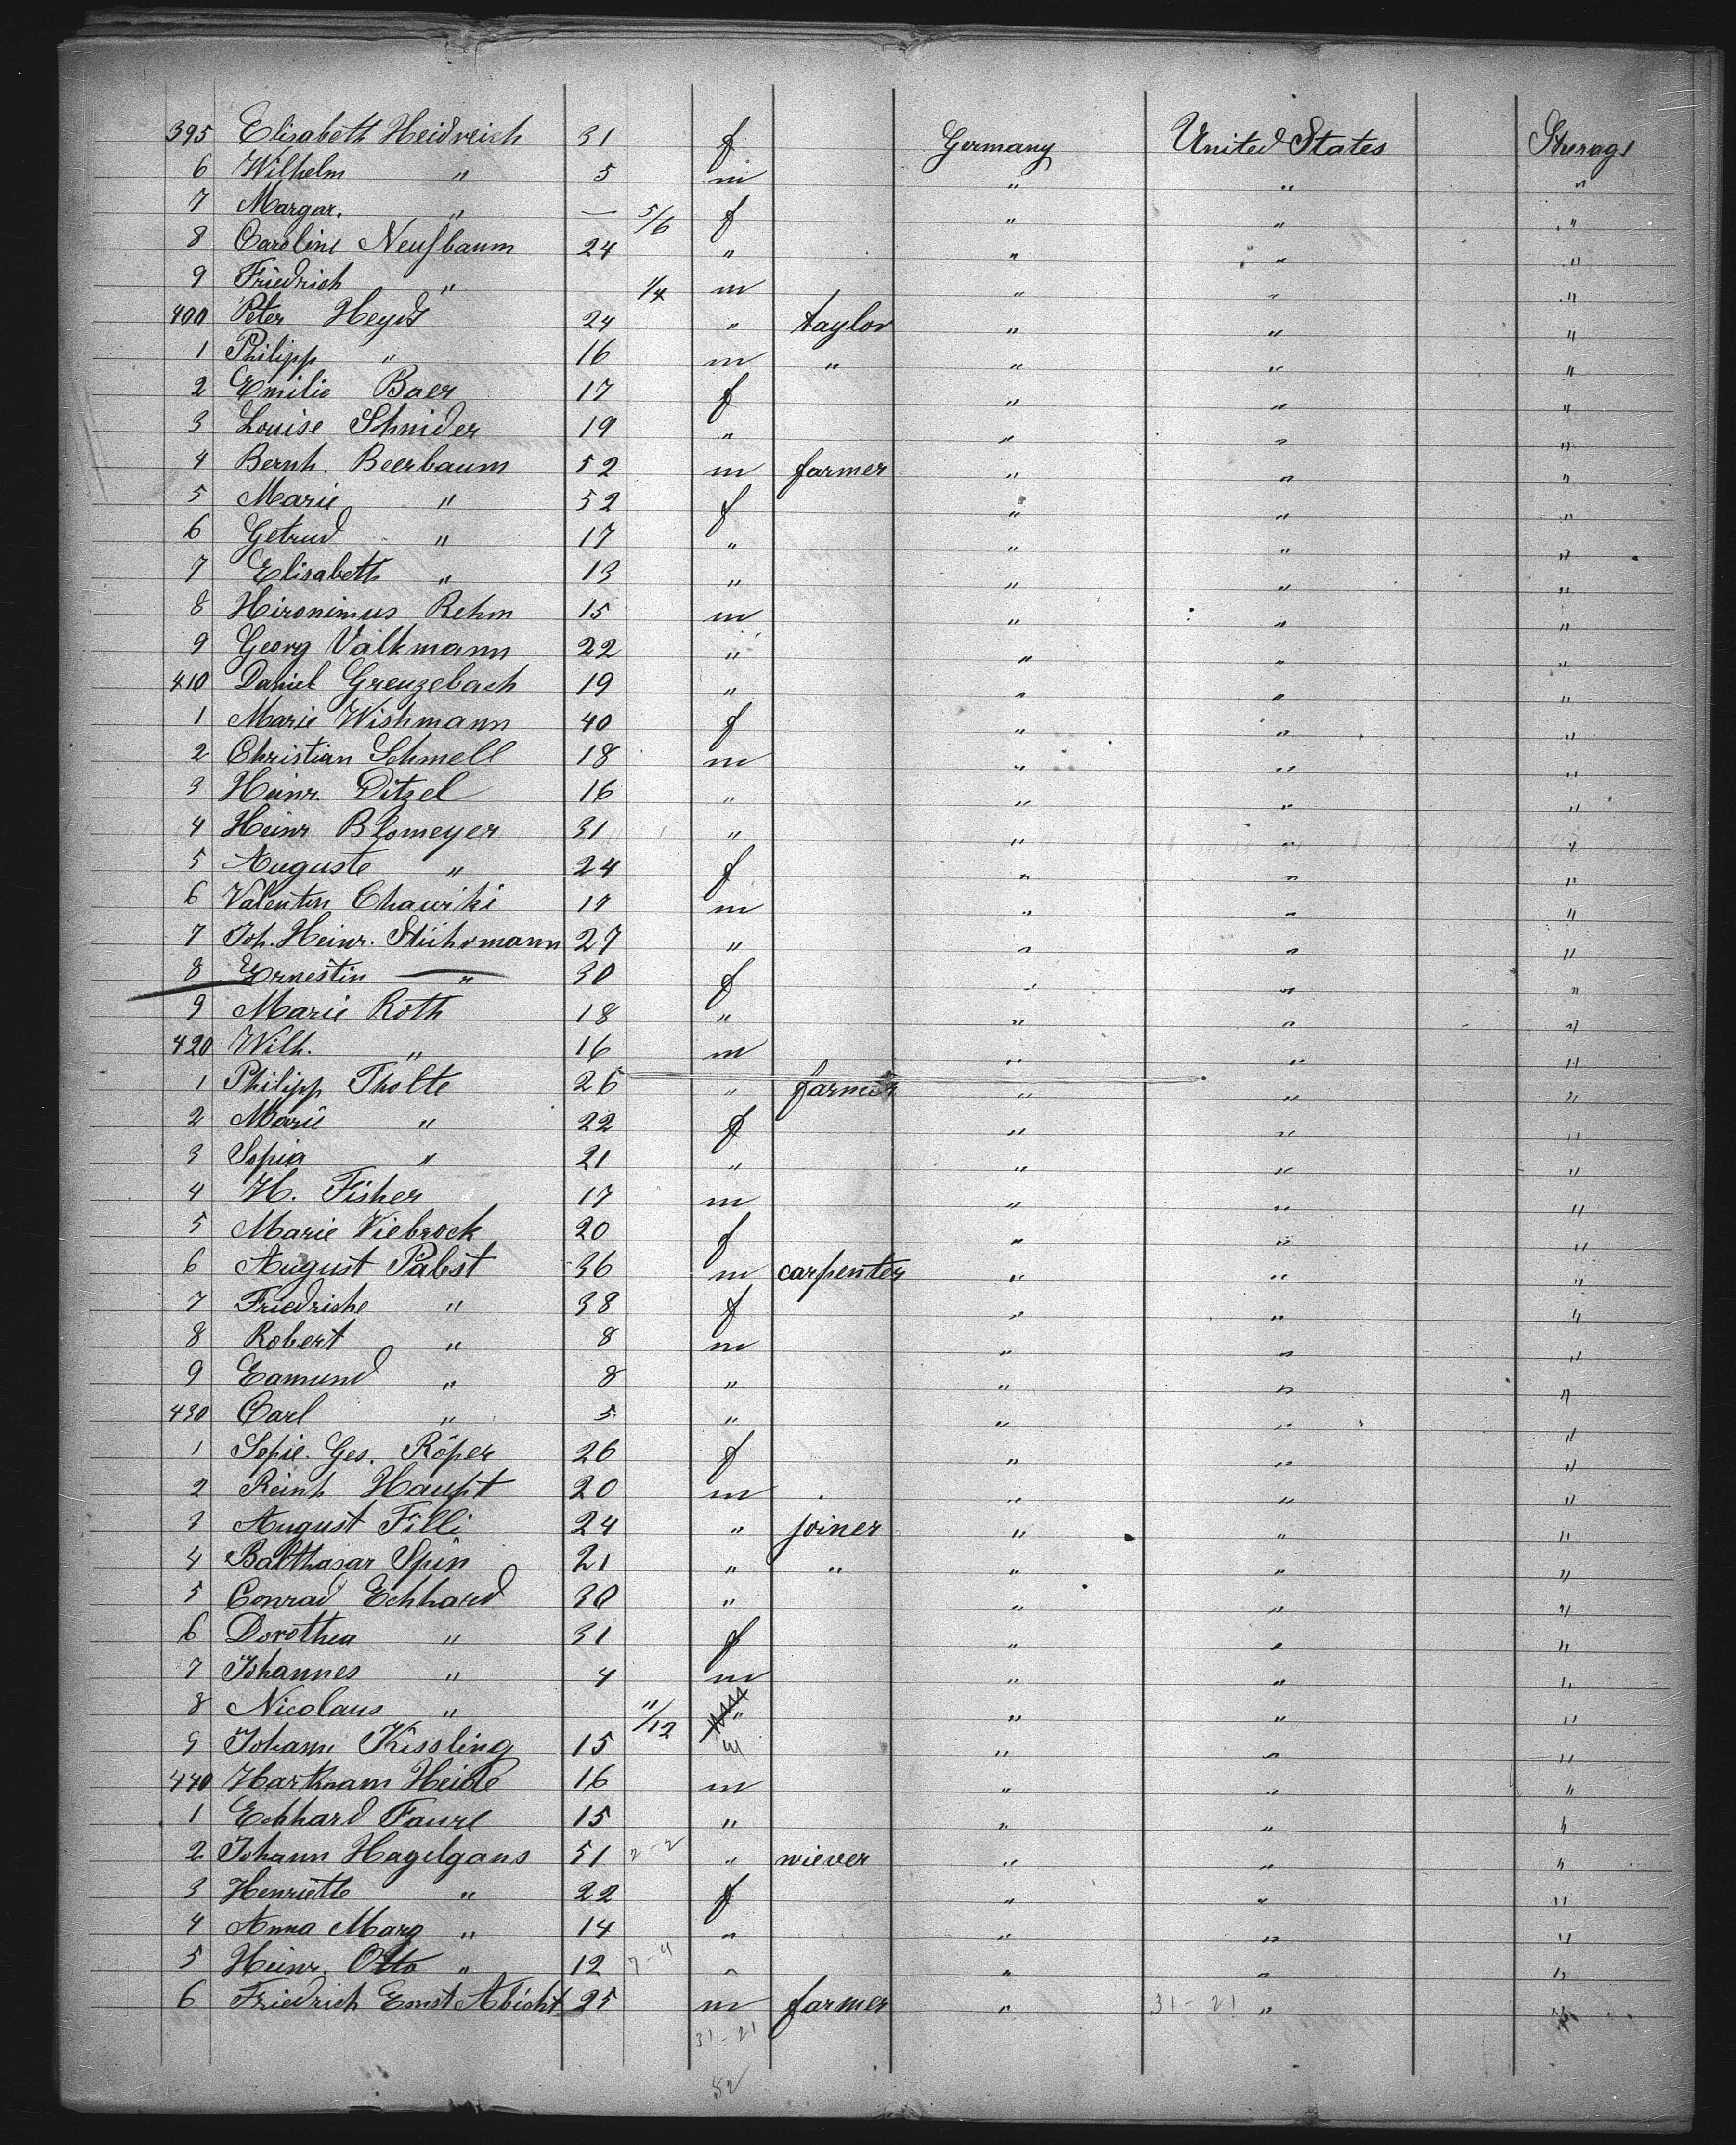 395 Elisabeth Heidreich 31 f Germany United States Steerage
6 Wilhelm " 5 m " " "
7 Margar. " — 5/6 f " " "
8 Caroline Neuſbaum 24 " " " "
9 Friedrich " 1/4 m " " "
400 Peter Heydt 24 " taylor " " "
1 Philipp " 16 m " " " "
2 Emilie Baer 17 f " " "
3 Louise Schnider 19 " " " "
4 Bernh. Beerbaum 52 m farmer " " "
5 Marie " 52 f " " "
6 Getrud " 17 " " " "
7 Elisabeth " 13 " " " "
8 Hironimus Rehm 15 m " " "
9 Georg Valkmann 22 " " " "
410 Daniel Greuzebach 19 " " " "
1 Marie Wishmann 40 f " " "
2 Christian Schmell 18 m " " "
3 Heinr. Ditzel 16 " " " "
4 Heinr Blomeyer 31 " " " "
5 Auguste " 24 f " " "
6 Valentin 17 m " " "
7 Joh. Heinr. Stührmann 27 " " " "
8 Ernestin " 30 f " " "
9 Marie Roth 18 " " " "
420 Wilh. " 16 m " " "
1 Philipp Tholte 26 " farmer " " "
2 Marie " 22 f " " "
3 Sopia " 21 " " " "
4 H. Fisher 17 m " " "
5 Marie Viebrock 20 f " " "
6 August Pabst 36 m carpenter " " "
7 Friedriche " 38 f " " "
8 Robert " 8 m " " "
9 Edmund " 8 " " " "
430 Carl " 5 " " " "
1 Sopie. Ges. Röper 26 f " " "
2 Reinh Haupt 20 m " " "
3 August Filli 24 " joiner " " "
4 Balthasar Spin 21 " " " " "
5 Conrad Echhard 30 " " " "
6 Dorothea " 31 f " " "
7 Johannes " 4 m " " "
8 Nicolaus " 11/12 " " " "
9 Johann Kissling 15 m " " "
440 Hartmam Heide 16 m " " "
1 Echhard Faure 15 " " " "
2 Johann Hagelgans 51 2-2 " wiever " " "
3 Henriette " 22 f " " "
4 Anna Marg " 14 " " " "
5 Heinr. Otto " 12 7-4 " " " "
6 Friedrich Ernst Abicht 25 m farmer " 31-21 " "
31-21
52